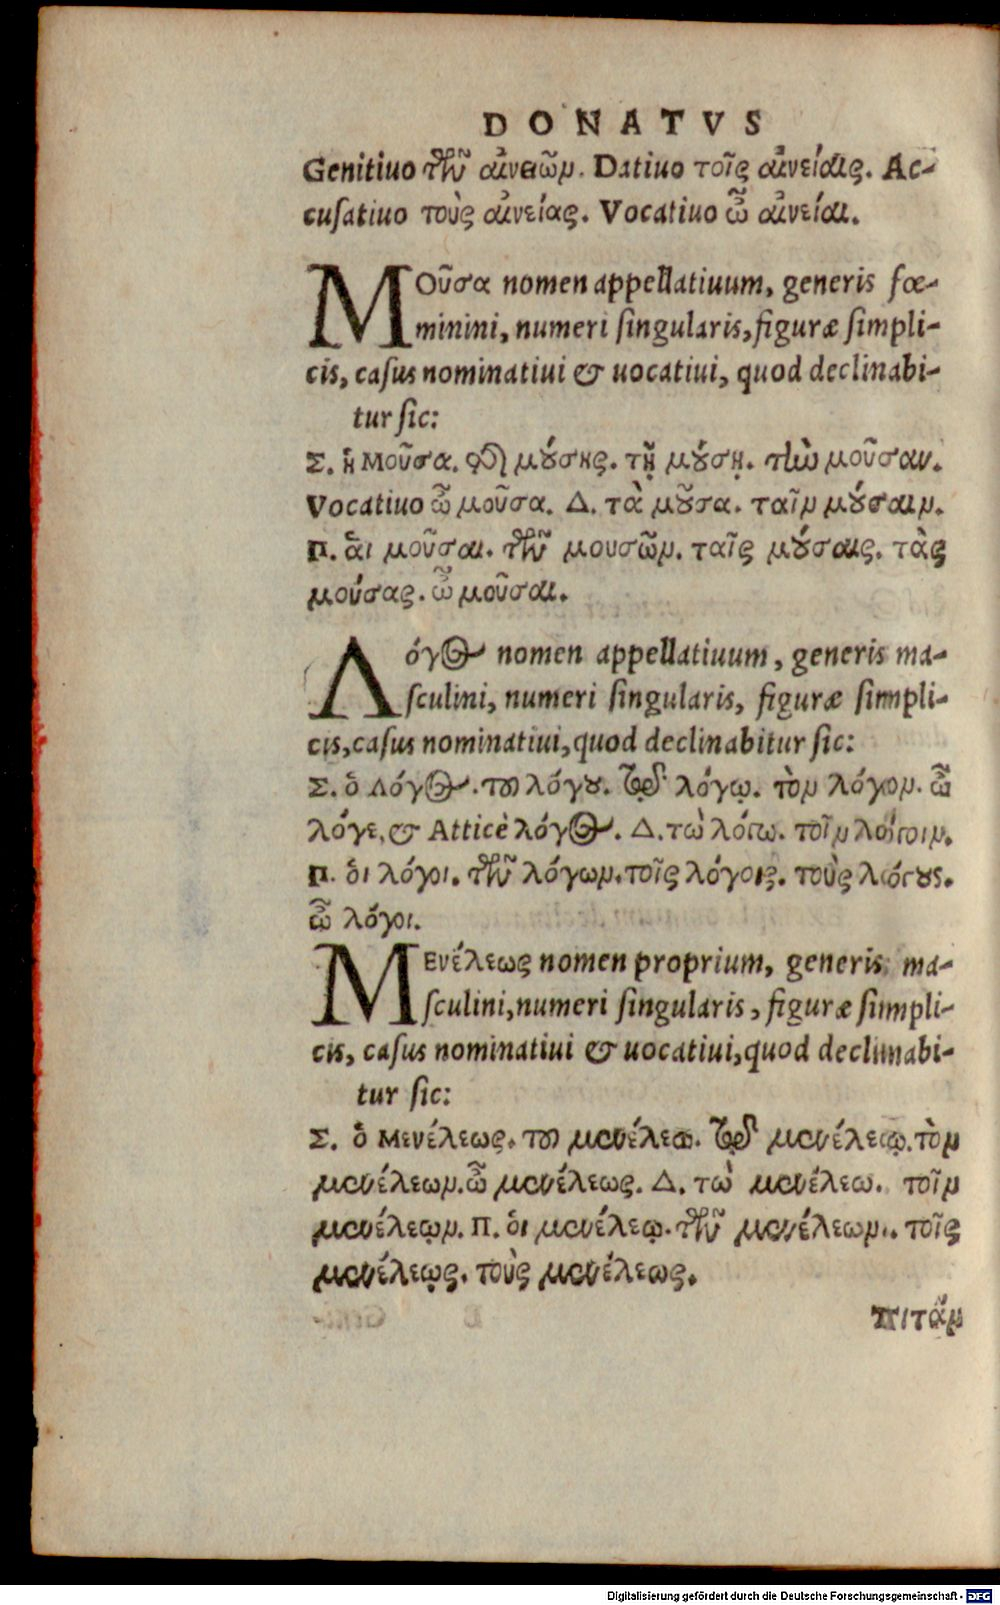 DONATVS
Genitiuo τῶν αἰνειῶν. Datiuo τοῖς αἰνείαις. Ac-
cusatiuo τοὺς αἰνείας. Vocatiuo ὦ αἰνείαι.
ΜΟῦσα nomen appellatiuum, generis fœ-
minini, numeri singularis, figuræ simpli-
cis, casus nominatiui & uocatiui, quod declinabi-
tur sic:
Σ. ἡ Μοῦσα. τῆς μούσης. τῇ μούσῃ. τὴν μοῦσαν.
Vocatiuo ὦ μοῦσα. Δ. τὰ μούσα. ταῖν μούσαιν.
Π. ἁι μοῦσαι. τῶν μουσῶν. ταῖς μούσαις. τὰς
μούσας. ὦ μοῦσαι.
Λόγος nomen appellatiuum, generis ma-
sculini, numeri singularis, figuræ simpli-
cis, casus nominatiui, quod declinabitur sic:
Σ. ὁ Λόγος. τοῦ λόγου. τῷ λόγῳ. τὸν λόγον. ὦ
λόγε, & Atticè λόγος. Δ. τὼ λόγω. τοῖν λόγοιν.
Π. ὁι λόγοι. τῶν λόγων. τοῖς λόγοις. τοὺς λόγους.
ὦ λόγοι.
ΜΕνέλεως nomen proprium, generis ma-
sculini, numeri singularis, figuræ simpli-
cis, casus nominatiui & uocatiui, quod declinabi-
tur sic:
Σ. ὁ Μενέλεως. τοῦ μενέλεω. τῷ μενέλεῳ. τὸν
μενέλεων. ὦ μενέλεως. Δ. τὼ μενέλεω. τοῖν
μενέλεῳν. Π. ὁι μενέλεῳ. τῶν μενέλεων. τοῖς
μενέλεῳς. τοὺς μενέλεως.
πιτὰν
Digitalisierung gefördert durch die Deutsche Forschungsgemeinschaft - DFG